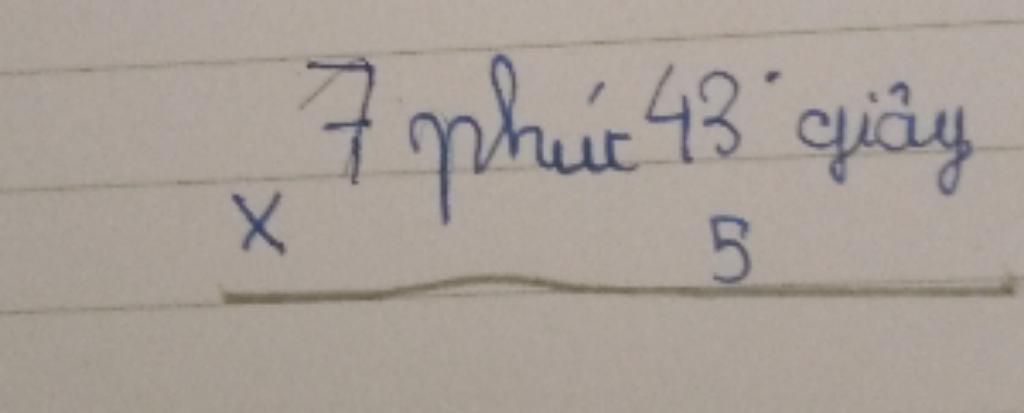 7 phút 43 giây
x 5